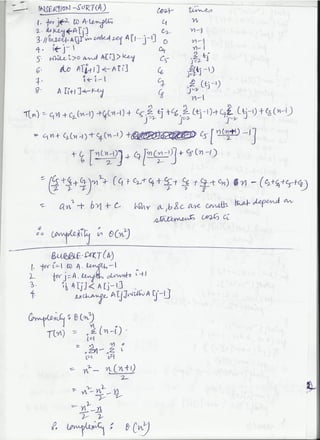 INSERTION-SORT(A) cost times
1. for j=2 to A.length C1 n
2. key=A[j] C2 n-1
3. //insert A[j] in sorted seq A[1..j-1] 0 n-1
4. i=j-1 C4 n-1
5. while i>0 and A[i]>key C5 Σ tj
6. do A[i+1]←A[i] C6 Σ(tj-1)
7. i←i-1 C7 Σ(tj-1)
8. A[i+1]←key C8 n-1
T(n) = C1n + C2(n-1) + C4(n-1) + C5 Σ tj + C6 Σ (tj-1) + C7 Σ (tj-1) + C8(n-1)
= C1n + C2(n-1) + C4(n-1) + C5 [n(n+1)/2 -1]
+ C6 [n(n-1)/2] + C7 [n(n-1)/2] + C8(n-1)
= an² + bn + c where a, b & c are consts that depend on
statements costs ci
∴ complexity is Θ(n²)
BUBBLE-SORT(A)
1. for i=1 to A.length-1
2. for j=A.length downto i+1
3. if A[j]<A[j-1]
4 exchange A[j] with A[j-1]
Complexity: Θ(n²)
T(n) = Σ (n-i)
= Σ n - Σ i
= n² - n(n+1)/2
= n² - n²/2 - n/2
= n²/2 - n/2
So complexity: Θ(n²)